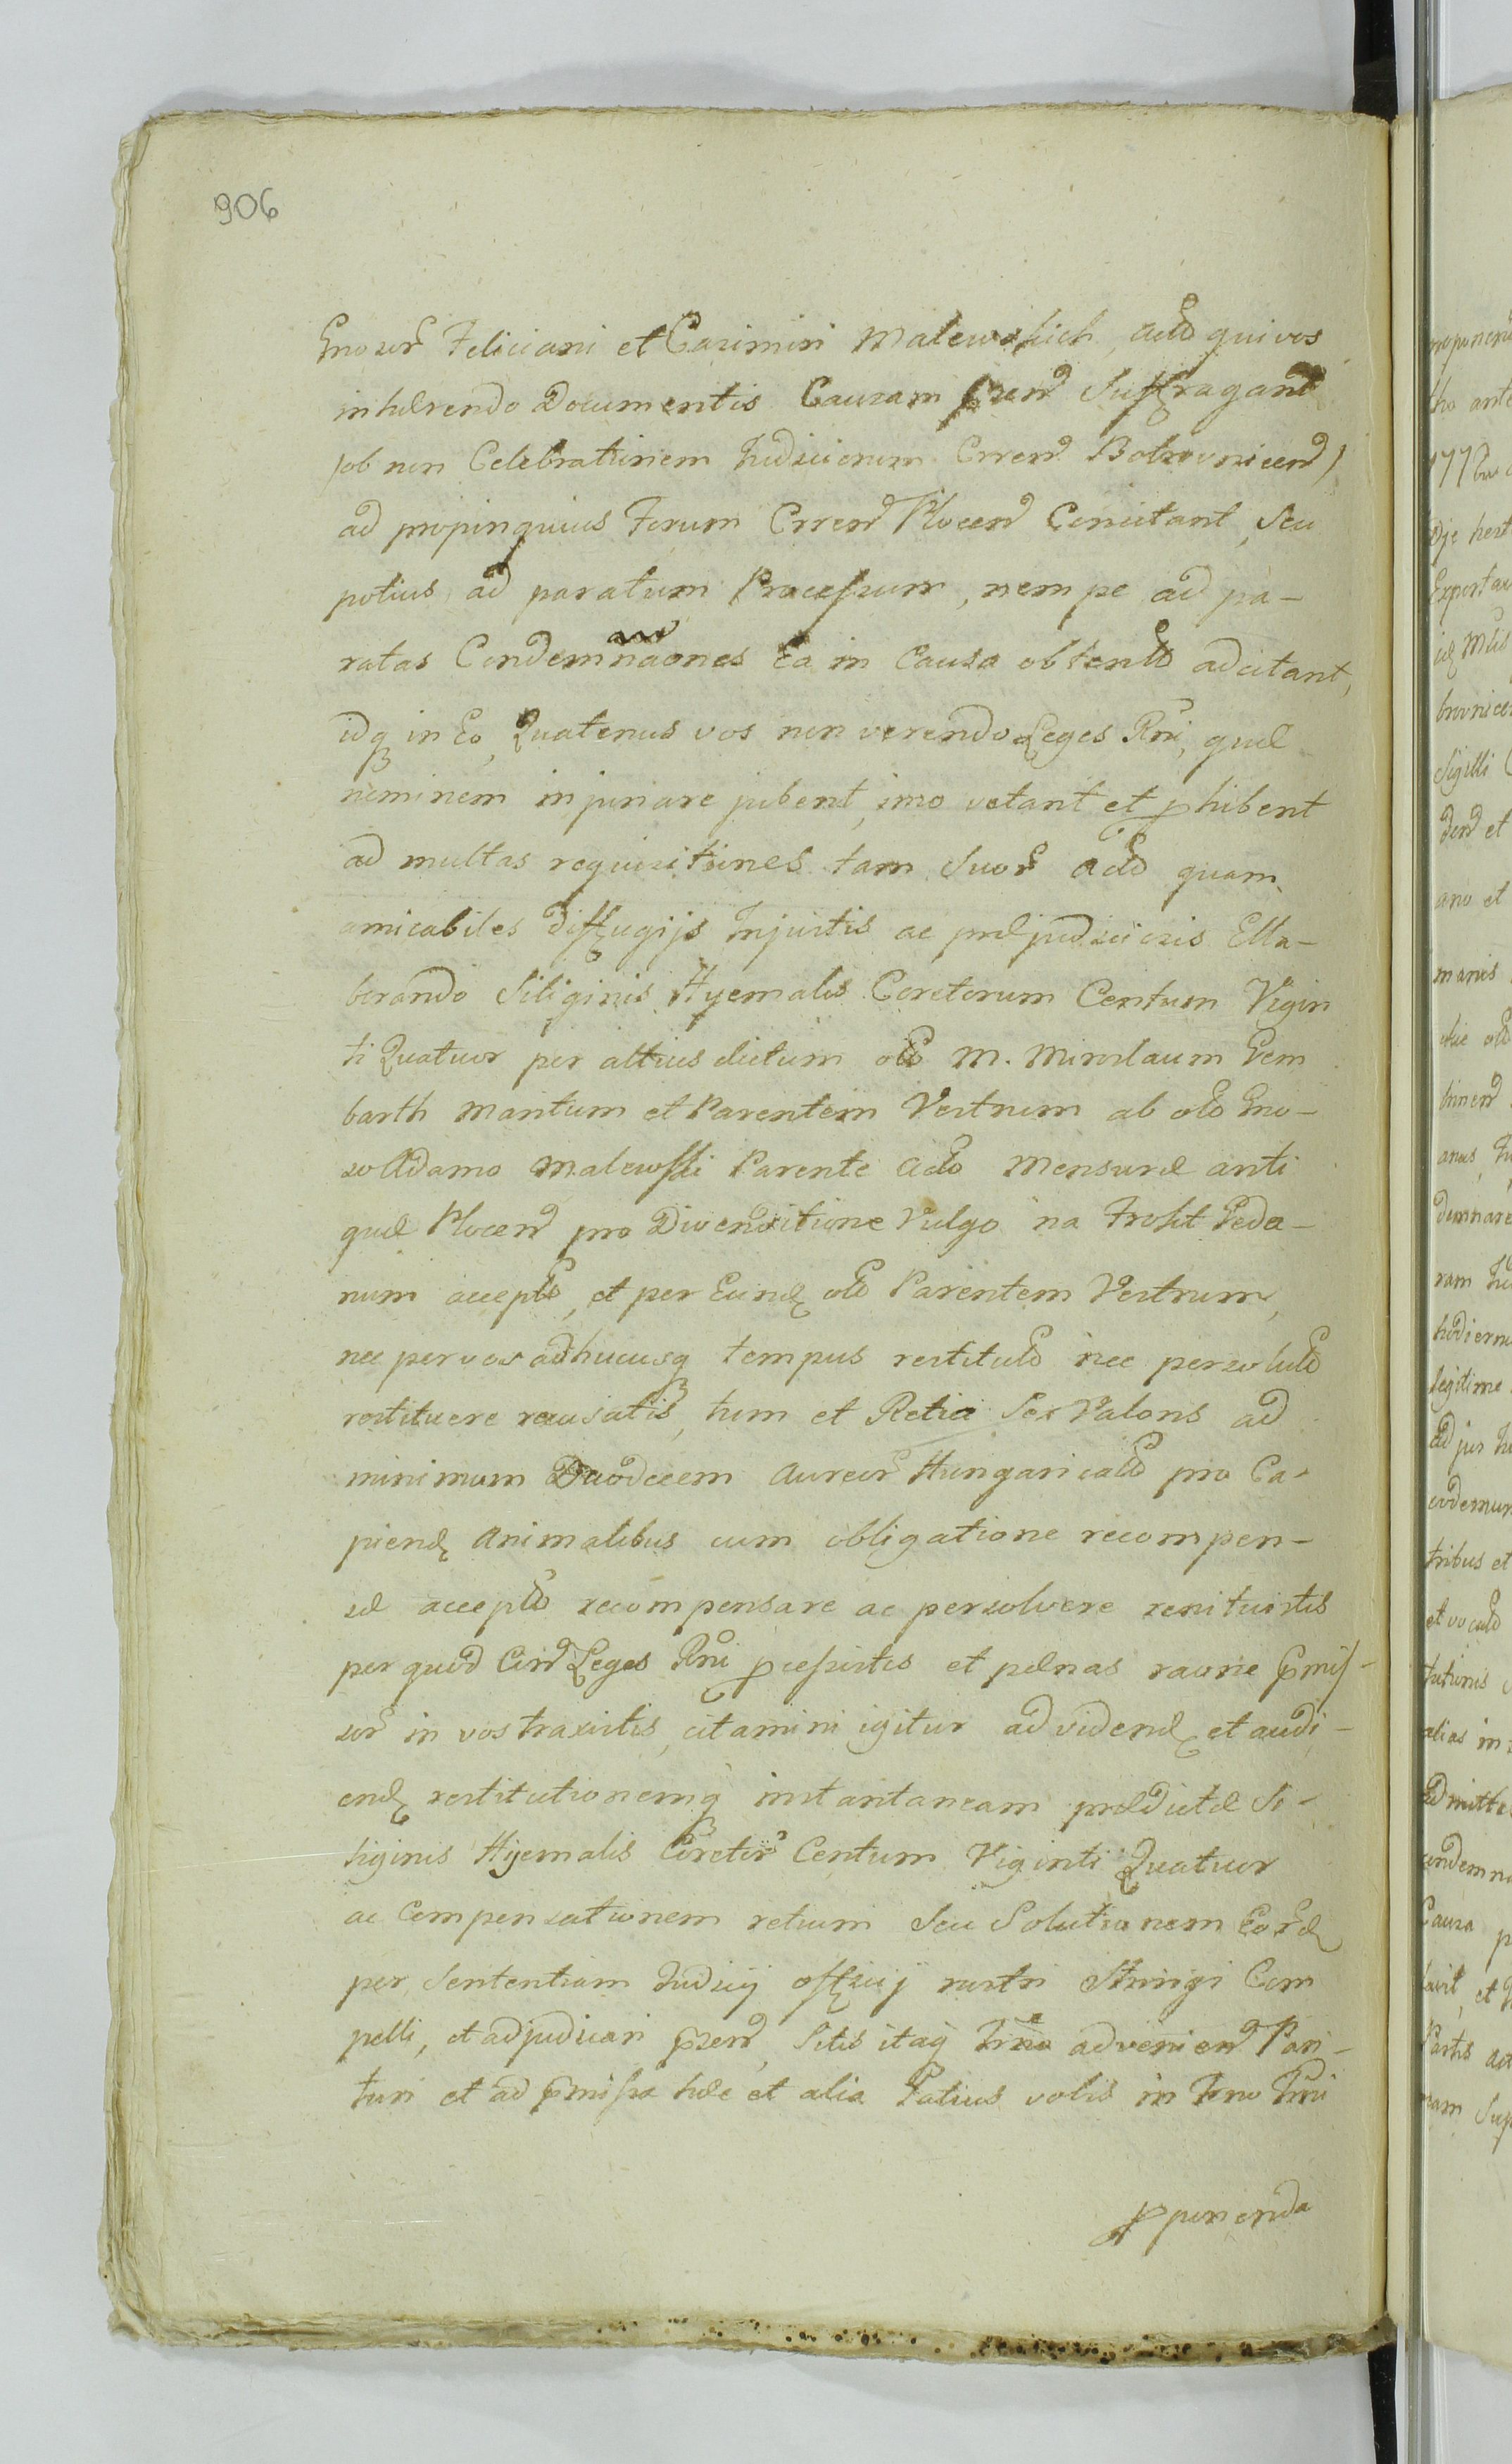 906
Gnosor Feliciani et Casimiri Malewskich, acto qui vos
inhærendo Documentis Causam pren Suffragant
/ob non Celebrationem Judiciorum Crren Bobrovnicen/
ad propinquius Forum Crren Plocen Concitant, Seu
potius ad paratum Processum, nempe ad pa-
ratas Condemnaones Ea in Causa obtento adcitant,
idq in Eo, Quatenus vos non verendo Leges Rni, quæ
neminem injuriare jubent, imo vetant et phibent
ad multas requisitiones tam Suor acto quam
amicabiles diffugijs Injustis ac præjudiciosis Ella-
borando Siliginis Hyemalis Coretorum Centum Vigin
ti Quatuor per altius dictum olo M. Miroslaum Gem
barth Maritum et Parentem Vestrum ab olo Gno-
so Adamo Malewski Parente Acto Mensuræ anti
quæ Plocen pro Divenditione Vulgo na Frokt Geda-
num accepto, et per Eund olo Parentem Vestrum,
nec per vos adhucusq tempus restituto nec persoluto
restituere recusatis, tum et Retia Sex Valoris ad
minimum Duodecem Aureor Hungaricalo pro Ca-
piend Animalibus cum obligatione recompen-
sæ accepto recompensare ac persolvere renituistis
per quod Con Leges Rni pcessistis et pœnas raone pmis-
sor in vos traxistis, citamini igitur ad vidend et audi-
end restitutionemq instantaneam prædictæ Si-
liginis Hyemalis Coretor Centum Viginti Quatuor
ac Compensationem retium Seu Solutionem Eord
per Sententiam Judicij officij nostri Stringi Com
pelli, et adjudicari pren, Sitis itaq Trno advenien Pari-
turi et ad pmissa hæc et alia Latius vobis in Trno Trni
pponenda